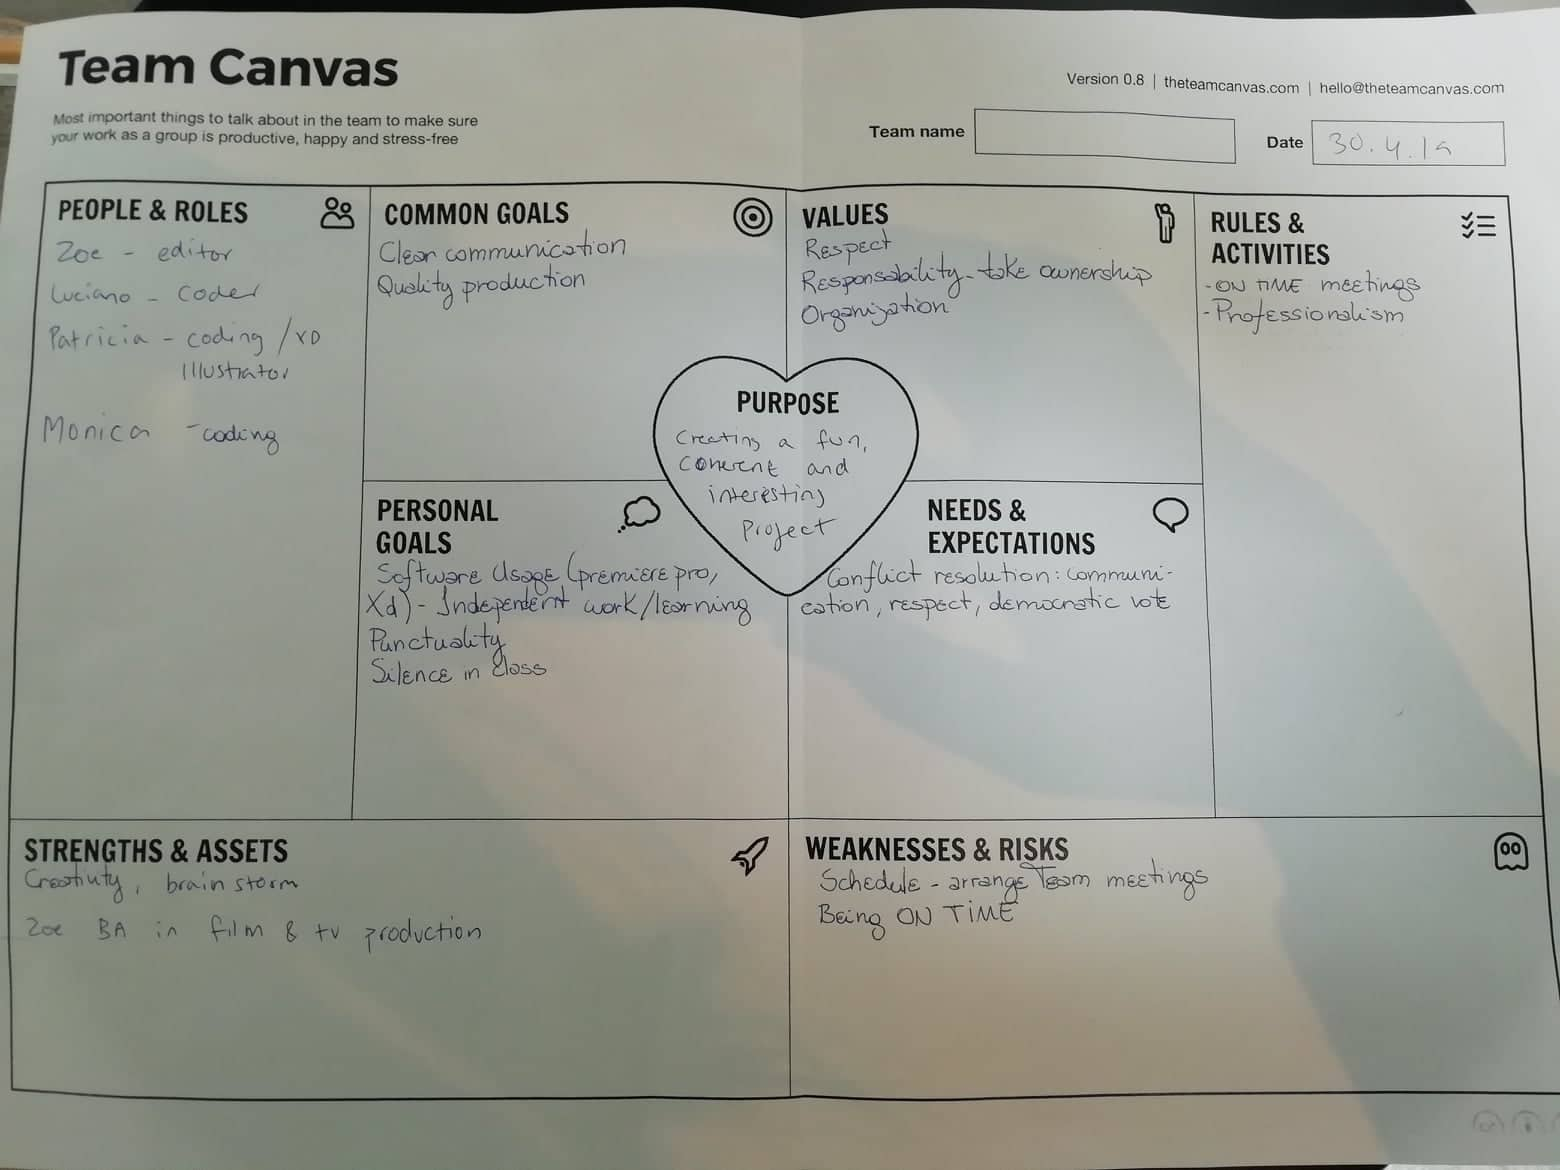 Team Canvas
Most important things to talk about in the team to make sure
your work as a group is productive, happy and stress-free
Version 0.8 | theteamcanvas.com | hello@theteamcanvas.com
Team name
Date 30.4.19
PEOPLE & ROLES
Zoe - editor
Luciano - coder
Patricia - coding / XD
Illustrator
Monica - coding
COMMON GOALS
Clear communication
Quality production
VALUES
Respect
Responsability - take ownership
Organization
RULES &
ACTIVITIES
- ON TIME meetings
- Professionalism
PURPOSE
Creating a fun,
coherent and
interesting
Project
PERSONAL
GOALS
Software Usage (premiere pro,
Xd) - Independent work/learning
Punctuality
Silence in class
NEEDS &
EXPECTATIONS
Conflict resolution: communi-
cation, respect, democratic vote
STRENGTHS & ASSETS
Creativity, brainstorm
Zoe BA in film & tv production
WEAKNESSES & RISKS
Schedule - arrange Team meetings
Being ON TIME